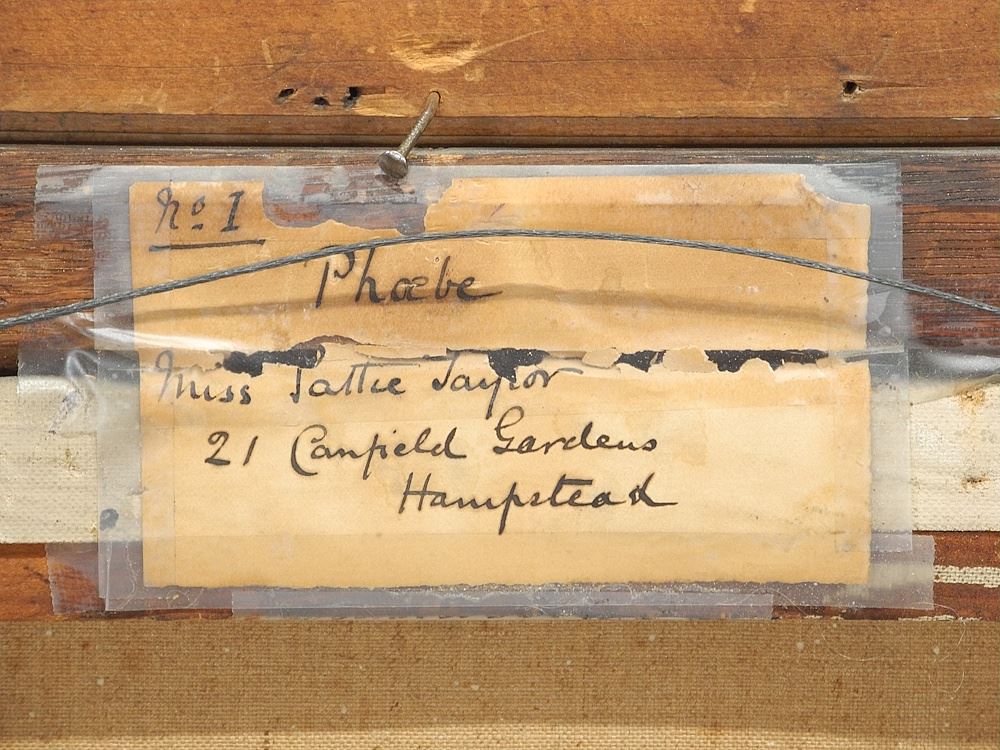 No. 1
Phœbe
Miss Pattie Taylor
21 Canfield Gardens
Hampstead